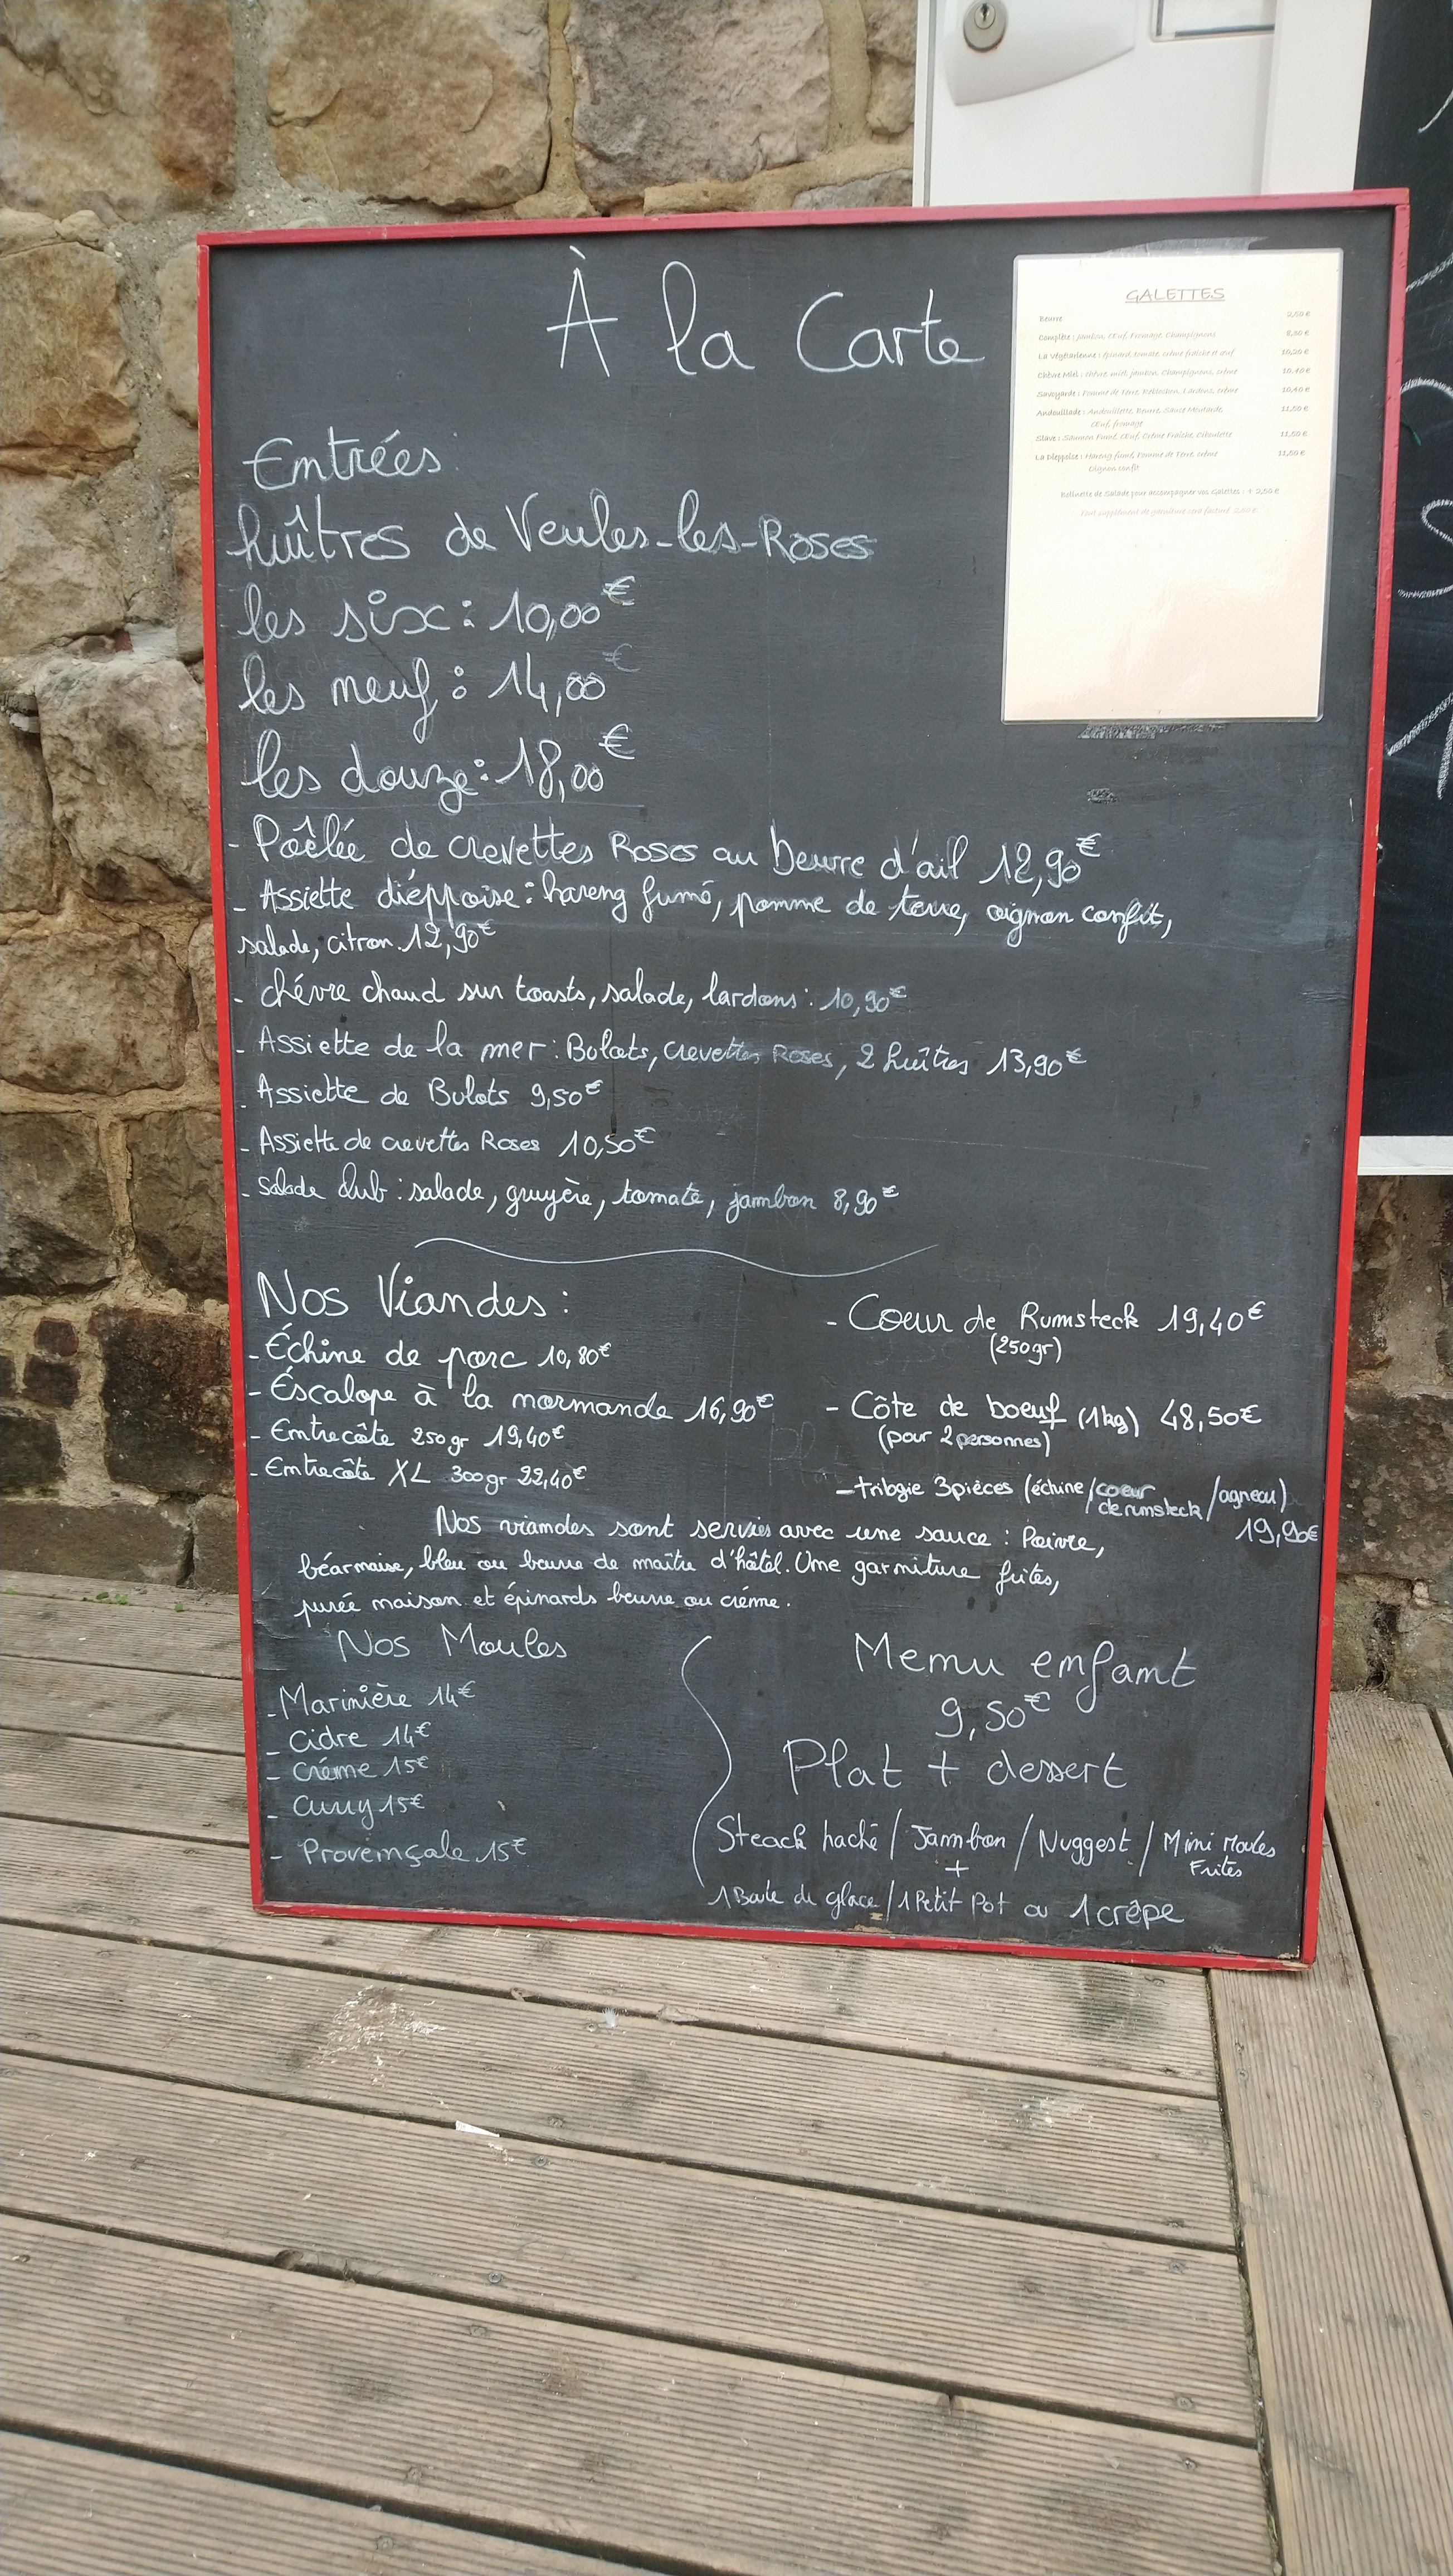 À la Carte
GALETTES
Beurre 2,50 €
Complète : Jambon, Œuf, Fromage, Champignons 8,50 €
La Végétarienne : Épinard, tomate, crème fraîche et œuf 10,20 €
Chèvre Miel : chèvre, miel, jambon, Champignons, crème 10,40 €
Savoyarde : Pomme de Terre, Reblochon, Lardons, crème 10,40 €
Andouillade : Andouillette, Beurre, Sauce Moutarde, 11,50 €
Œuf, fromage
Slave : Saumon Fumé, Œuf, Crème Fraîche, Ciboulette 11,50 €
La Dieppoise : Hareng fumé, Pomme de Terre, crème 11,50 €
Oignon confit
de Salade pour accompagner vos Galettes : + 2,50 €
Tout supplément de garniture sera facturé 2,50 €
Entrées
huîtres de Veules-les-Roses
les six : 10,00€
les neuf : 14,00€
les douze : 18,00€
- Poêlée de crevettes Roses au beurre d'ail 12,90€
- Assiette diéppoise : hareng fumé, pomme de terre, oignon confit,
salade, citron. 12,90€
- chévre chaud sur toasts, salade, lardons : 10,90€
- Assiette de la mer : Bulots, crevettes Roses, 2 huîtres 13,90€
- Assiette de Bulots 9,50€
- Assiette de crevettes Roses 10,50€
- Salade club : salade, gruyère, tomate, jambon 8,90€
Nos Viandes :
- Échine de porc 10,80€
- Éscalope à la normande 16,90€
- Entrecôte 250gr 19,40€
- Entrecôte XL 300gr 22,40€
- Coeur de Rumsteck 19,40€
(250gr)
- Côte de boeuf (1kg) 48,50€
(pour 2 personnes)
- trilogie 3 pièces (échine/coeur de rumsteck/agneau)
19,90€
Nos viandes sont servies avec une sauce : Poivre,
béarnaise, bleu ou beurre de maître d'hôtel. Une garniture frites,
purée maison et épinards beurre ou créme.
Nos Moules
- Marinière 14€
- Cidre 14€
- Créme 15€
- Curry 15€
- Provençale 15€
Menu enfant
9,50€
Plat + dessert
Steack haché / Jambon / Nuggest / Mini Moules
Frites
+
1 Boule de glace / 1 Petit Pot ou 1 crêpe